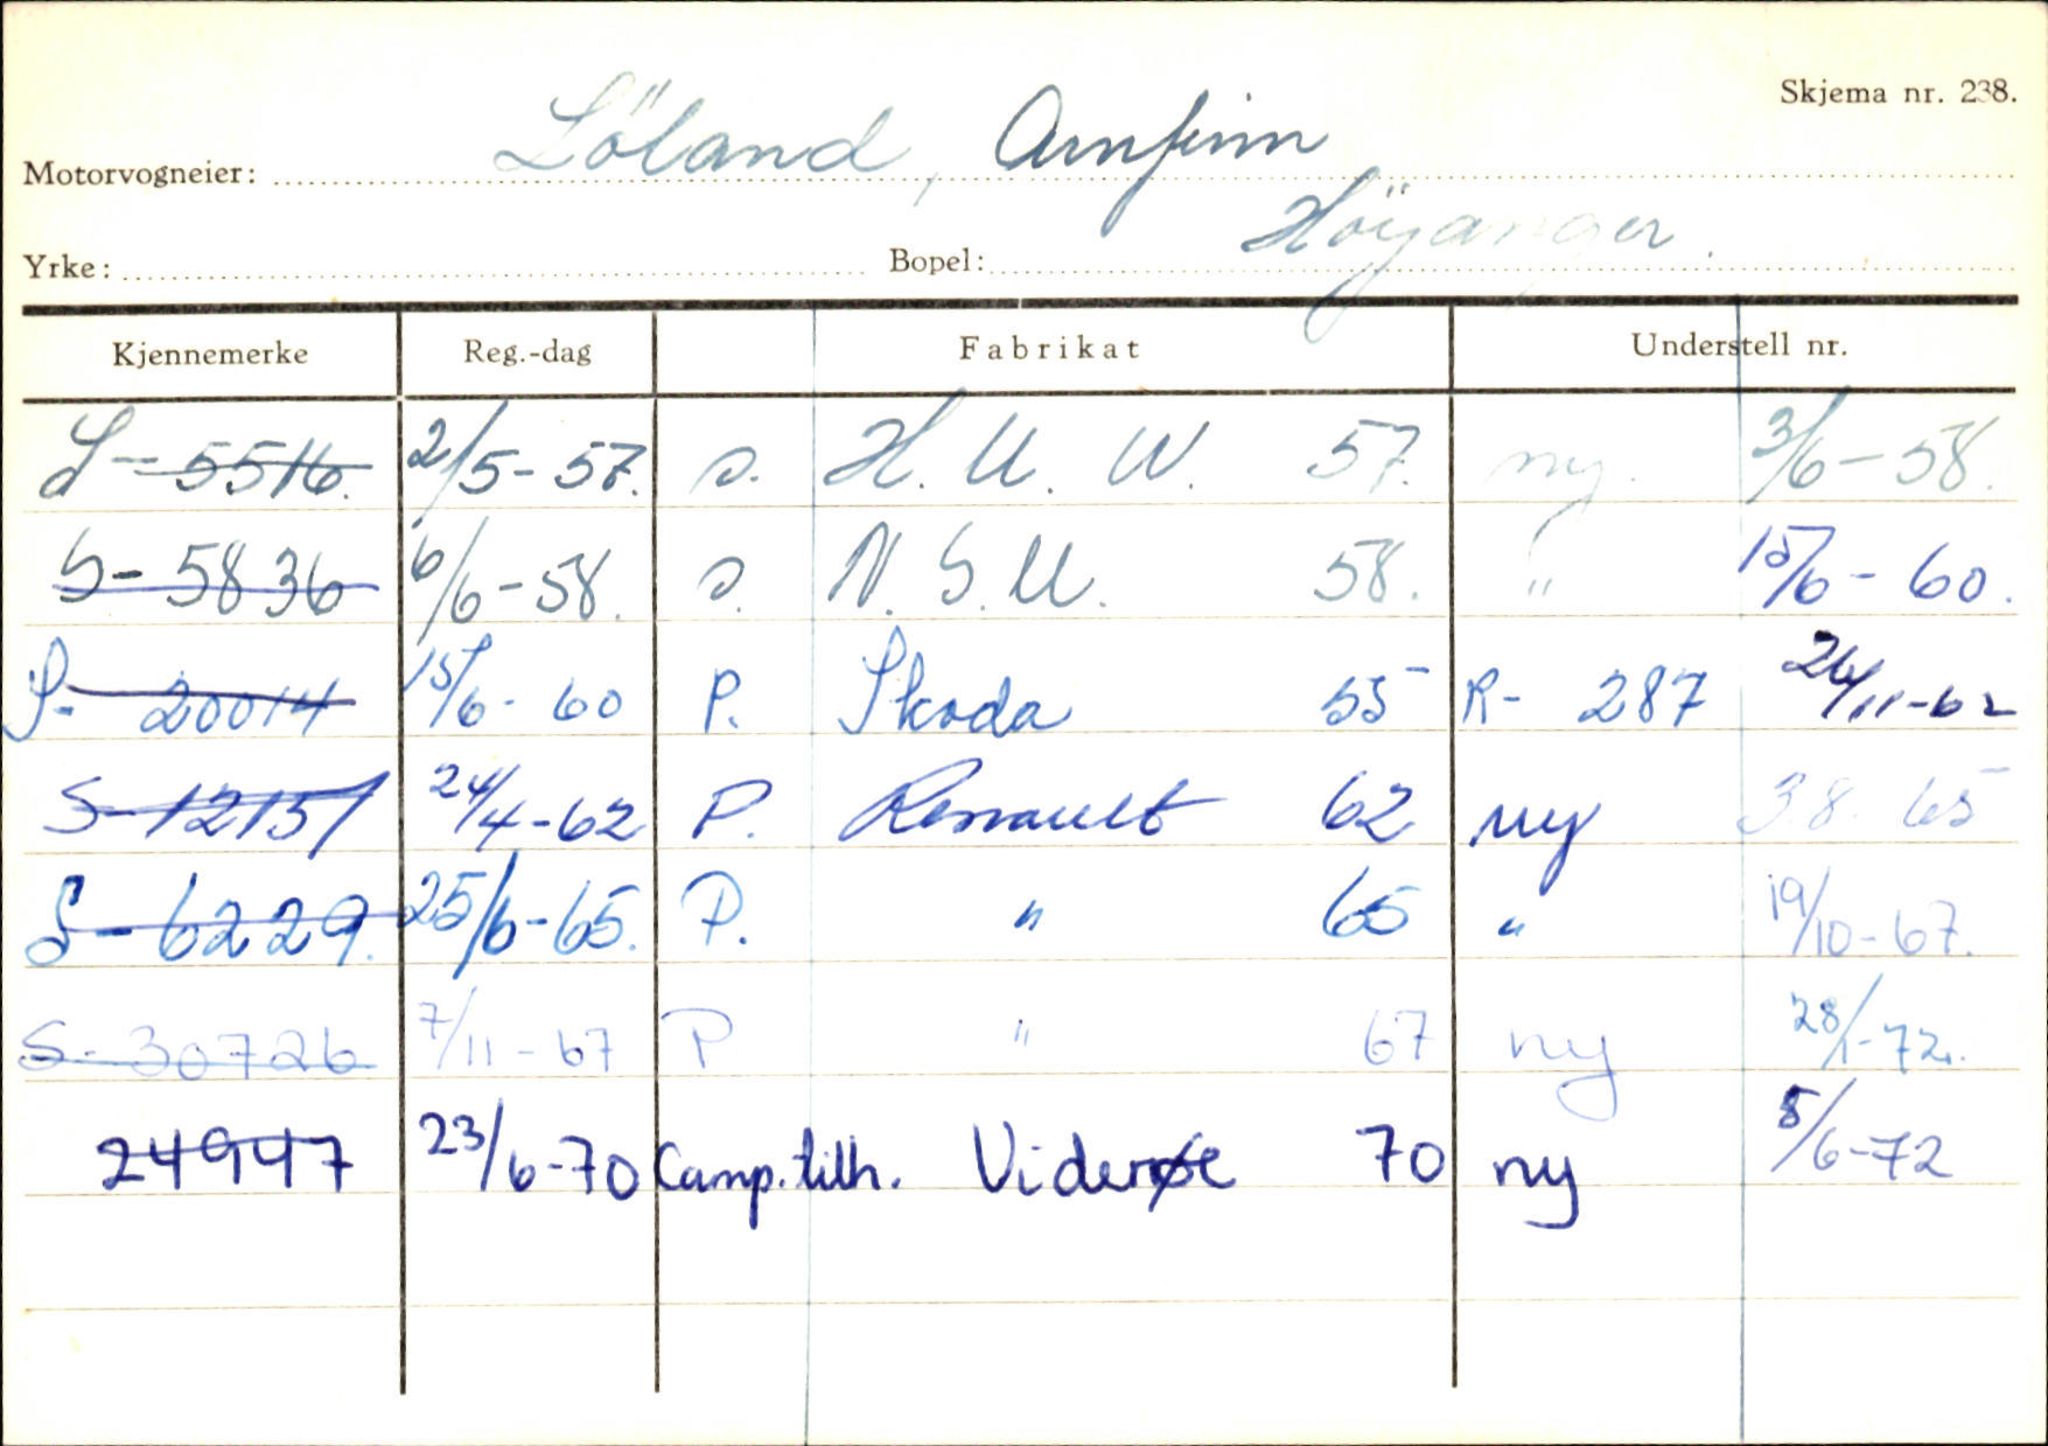 Skjema nr. 238.
Motorvogneier: Löland, Arnfinn
Yrke: Bopel: Höyanger.
Kjennemerke Reg.-dag Fabrikat Understell nr.
S-5516. 2/5-57. s. H. U. W. 57. ny. 3/6-58.
S-5836 6/6-58. s. N. S. U. 58. " 15/6-60.
S-20014 15/6-60 P. Skoda 55 R-287 26/11-62
S-12151 24/4-62 P. Renault 62 ny 3.8.65
S-6229. 25/6-65. P. " 65 " 19/10-67.
S-30726 7/11-67 P " 67 ny 28/1-72.
24947 23/6-70 Camp.tilh. Viderøe 70 ny 8/6-72